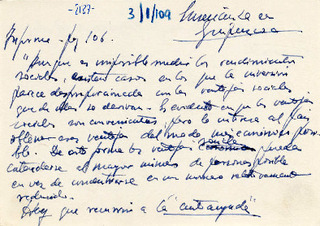 -2127-
3/1/109
Enseñanza en
Guipúzcoa
Informe - pág 106.
"Aunque es imposible medir los rendimientos
sociales, existen casos en los que la inversión
parece desproporcionada con las ventajas sociales
que de ellas se derivan. Es evidente que las ventajas
sociales son convenientes, pero lo interesa al plan
obtener esas ventajas del modo más económico posi-
ble. De esta forma las ventajas sociales puede
extenderse al mayor número de personas posible
en vez de concentrarse en un número relativamente
reducido.
Hay que recurrir a la "autoayuda"